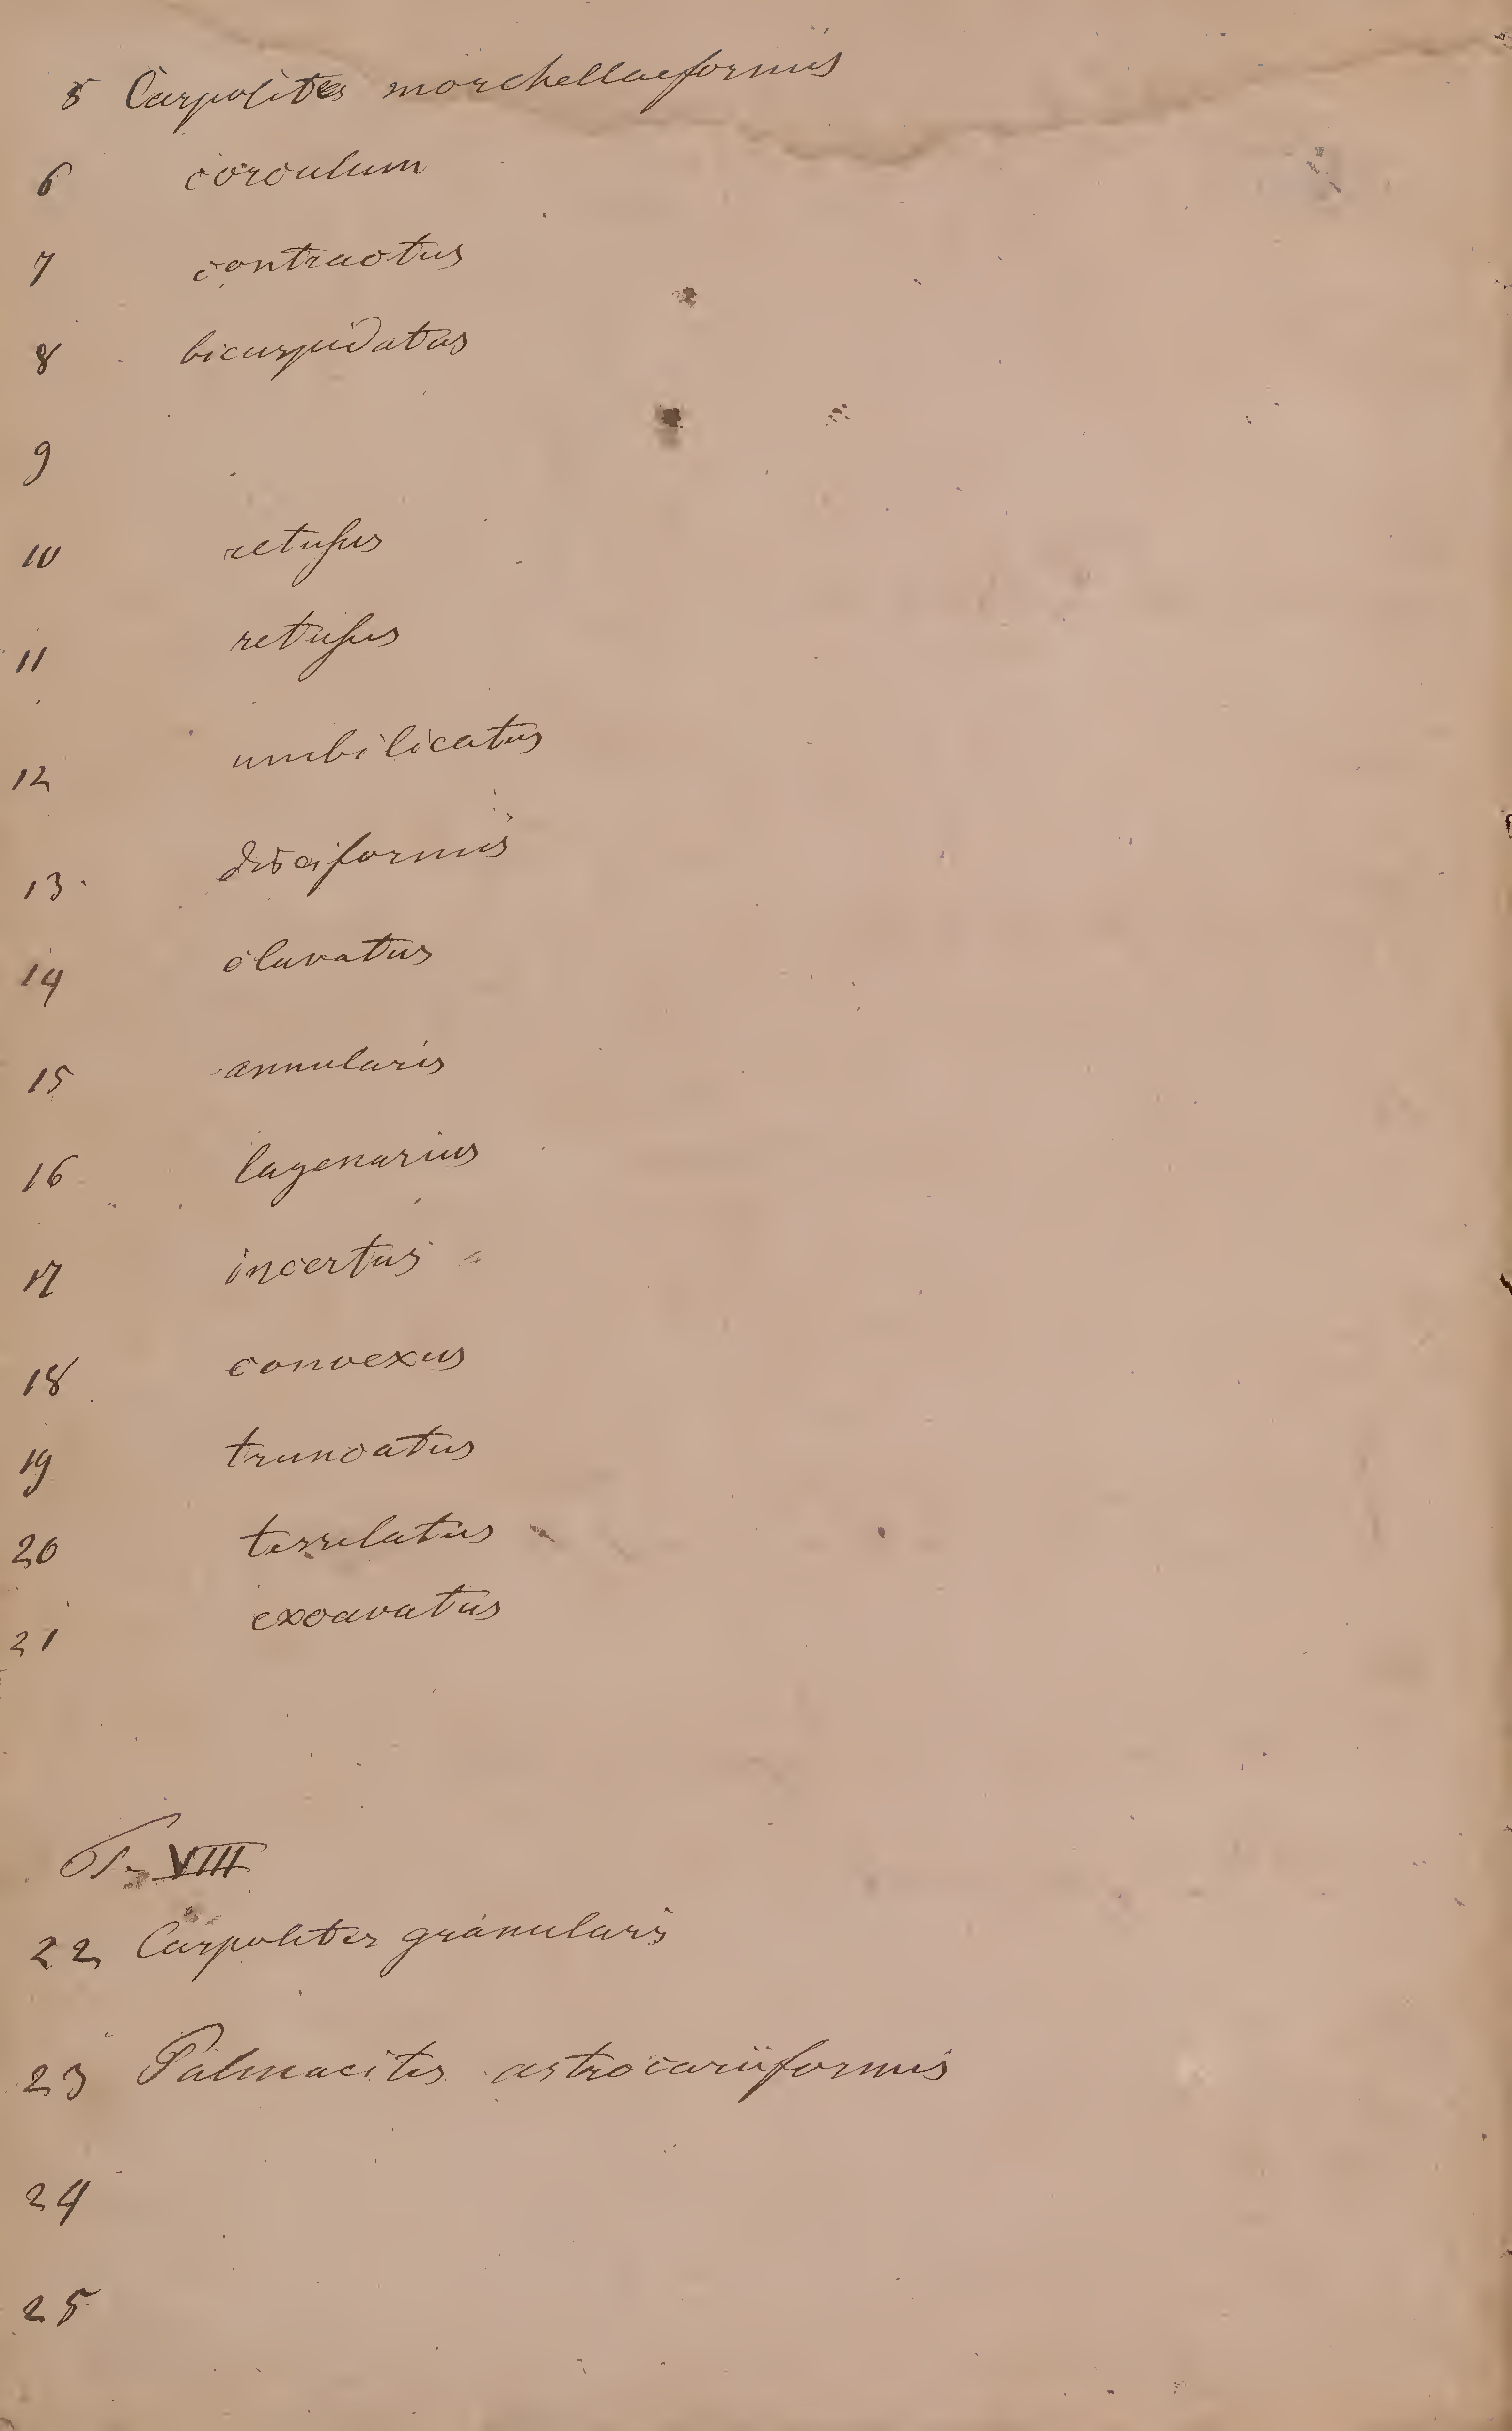 5 Carpolites morchellaeformis
6 corculum
7 contractus
8 bicuspidatus
9
10 retusus
11 retusus
12 umbilicatus
13 disciformis
14 clavatus
15 annularis
16 lagenarius
17 incertus
18 convexus
19 truncatus
20 tesselatus
21 excavatus
T. VIII
22 Carpolites granularis
23 Palmacites astrocariiformis
24
25